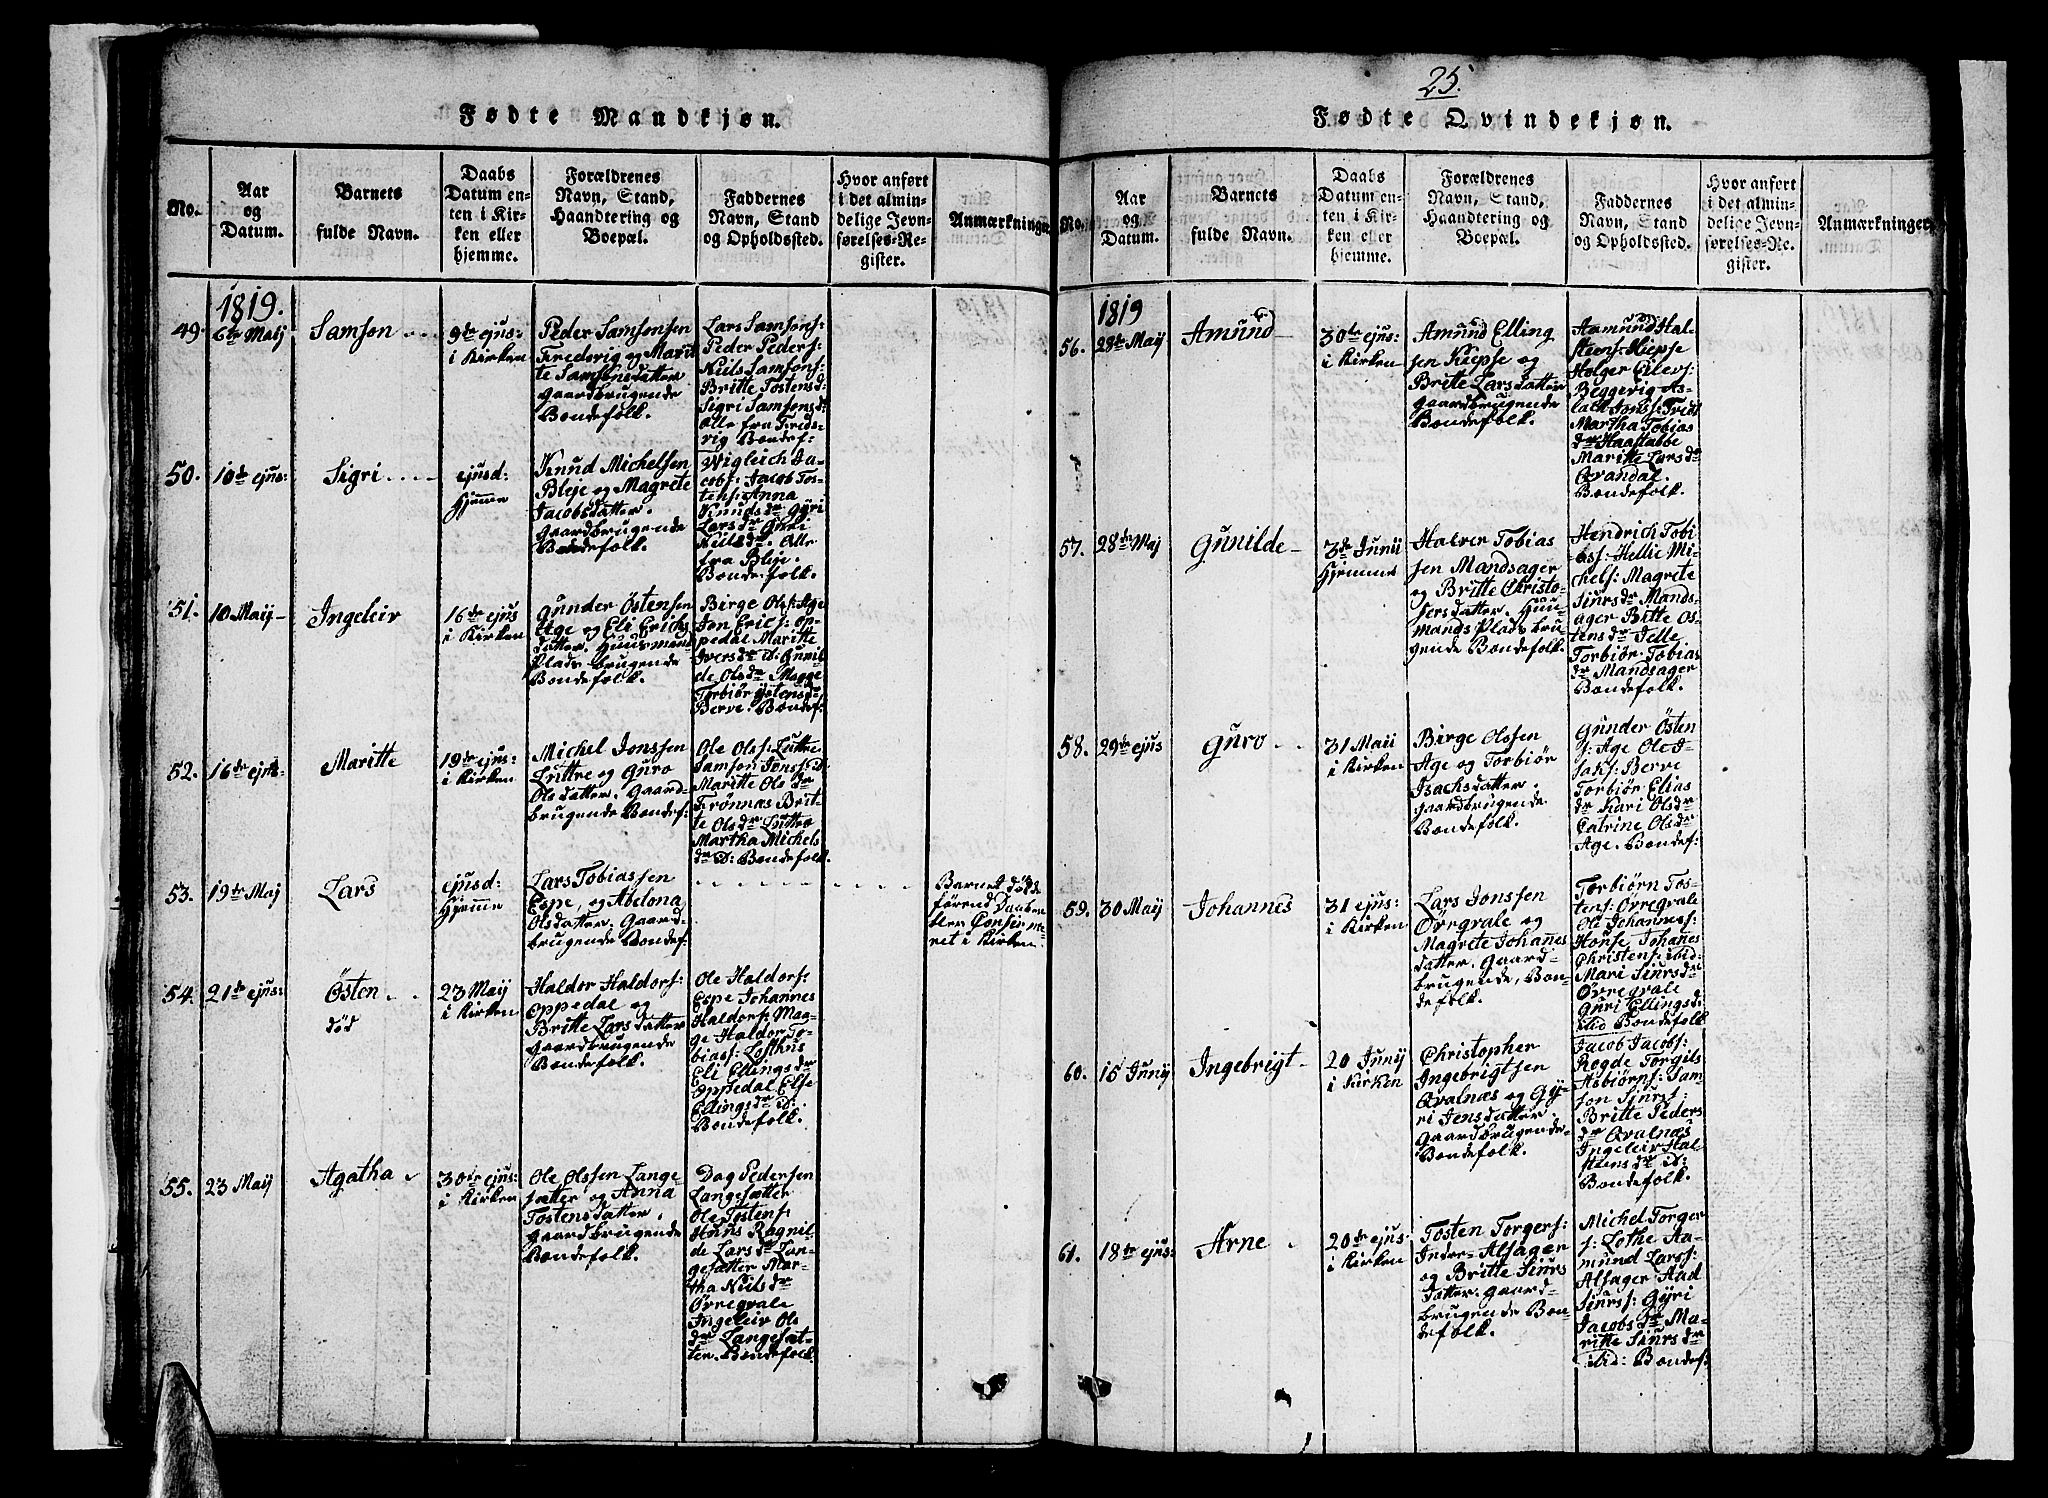 Fødte Mandkjøn.
No.
Aar
og
Datum.
Barnets
fulde Navn.
Daabs
Datum en-
ten i Kir-
ken eller
hjemme.
Forældrenes
Navn, Stand,
Haandtering og
Boepæl.
Faddernes
Navn, Stand
og Opholdssted.
Hvor anført
i det almin-
delige Jevn-
førelses-Re-
gister.
Anmærkninger
1819.
49.
6te Maij
Samson
9de ejus:
i Kirken
Peder Samsonsen
Fredsvig og Marit
te Samsonsdatter
Gaardbrugende
Bondefolk.
Lars Samsons:
Peder Peders:
Niels Samsons:
Britte Tostensd:
Sigri Samsonsd:
Alle fra Freds-
vig Bondef:
50.
10de ejus:
Sigri
ejusd:
Hjemme
Knud Michelsen
Bleje og Magrete
Jacobsdatter.
Gaardbrugende
Bondefolk.
Wigleich Ja-
cobs: Jacob Tos-
tens: Anna
Knudsdr Gyri
Larsdr Guri
Nielsdr. Alle
fra Bleje.
Bondefolk.
51.
10 Maij
Ingeleir
16de ejus
i Kirken
Gunder Østensen
Age og Eli Erichs
datter. Huusmand
Plads brugende
Bondefolk.
Birge Ols: Age
Jon Erics: Op-
pedal Maritte
Iversdr id: Gunil
de Olsdr Magge
Torbiør Østensdr
Berve. Bondef:
52.
16de ejus:
Maritte
19de ejus:
i Kirken
Michel Jonssen
Luttre og Guro
Olsdatter. Gaard-
brugende Bondef:
Ole Ols: Luttre
Samson Jons: id
Maritte Olsdr
Trønnæs Brit-
te Olsdr Luttro
Martha Michels
dr id: Bondefolk.
53.
19de Maij
Lars
ejusd:
Hjemme
Lars Tobiassen
Espe, og Abelona
Olsdatter: Gaard-
brugende Bondef:
Barnet døde
førend Daaben
blev Confirme-
ret i Kirken
54.
21de ejus:
Østen
død
23 Maij
i Kirken
Haldor Haldors:
Oppedal og
Britte Larsdatter
Gaardbrugende
Bondefolk.
Ole Haldors:
Espe Johannes
Haldors: Mag-
ge Haldor To-
bias: Lofthus
Eli Ellingsdr
Oppedal Else
Ellingsdr id:
Bondefolk.
55.
23 Maij
Agatha
30te ejus:
i Kirken
Ole Olssen Lange-
sætter og Anna
Tostensdatter.
Gaardbrugende
Bondefolk.
Dag Pedersen
Langesætter
Ole Tostens:
Huus Ragnil-
de Larsdr Lan-
gesætter Mar-
tha Nielsdr
Ørregrale
Ingeleir Ols
dr Langesæt-
ter. Bondefolk.
25.
Fødte Qvindekjøn.
No.
Aar
og
Datum.
Barnets
fulde Navn.
Daabs
Datum en-
ten i Kir-
ken eller
hjemme.
Forældrenes
Navn, Stand,
Haandtering og
Boepæl.
Faddernes
Navn, Stand
og Opholdssted.
Hvor anført
i det almin-
delige Jevn-
førelses-Re-
gister.
Anmærkninger
1819
56.
28de Maij
Amund
30te ejus:
i Kirken
Amund Elling
sen Kiepse og
Britte Larsdatter
Gaardbrugende
Bondefolk.
Aamund Hal-
steens: Kiepse
Holger Eilevs:
Beggevig As-
lak Jons: Tredt
Martha Tobias
dr Haastabbe
Maritte Larsdr
Qvandal.
Bondefolk.
57.
28de Maj
Gunilde
3de Junij
Hjemme
Halver Tobias
sen Mandsager
og Britte Christo-
fersdatter. Huus-
mands Plads bru-
gende Bondefolk.
Hendrich Tobi-
as: Hellie Mi-
chels: Magrete
Siursdr Mands-
ager Britte Øs-
tensdr Jelle
Torbiør Tobias
dr Mandsager
Bondefolk.
58.
29de ejus
Guro
31 Maij
i Kirken
Birge Olssen
Age og Torbiør
Isachsdatter.
Gaardbrugende
Bondefolk.
Gunder Østen
s: Age Ole I-
saks: Berve
Torbiør Elias
dr Kari Olsdr
Catrine Olsdr
Age. Bondef:
59.
30 Maij
Johannes
31 ejus:
i Kirken
Lars Jonssen
Ørregrale og
Magrete Johannes
datter. Gaard-
brugende, Bon-
defolk.
Torbiørn Tos-
tens: Ørregrale
Ole Johannes:
House Johanes
Christens: ibid:
Mari Siursdr
Øvregrale
Guri Ellingsd:
ibid Bondefolk
60.
15 Junij
Ingebrigt
20 Junij
i Kirken
Christopher
Ingebrigtsen
Qvalnæs og Gy-
ri Jensdatter.
Gaardbrugende
Bondefolk.
Jacob Jacobs:
Rogde Torgils
Asbiørns: Sam-
son Siurs:
Britte Peders
dr Qvalnæs
Ingeleir Hal-
steensdr id:
Bondefolk.
61.
18de ejus:
Arne
20de ejus:
i Kirken
Tosten Torgers:
Indre-Alsager
og Britte Siurs
datter. Gaard-
brugende Bon-
defolk.
Michel Torger
s: Lothe Aa-
mund Lars:
Alsager Aad
Siurs: Gyri
Jacobsdr Ma-
ritte Siursdr
ibid: Bondef: